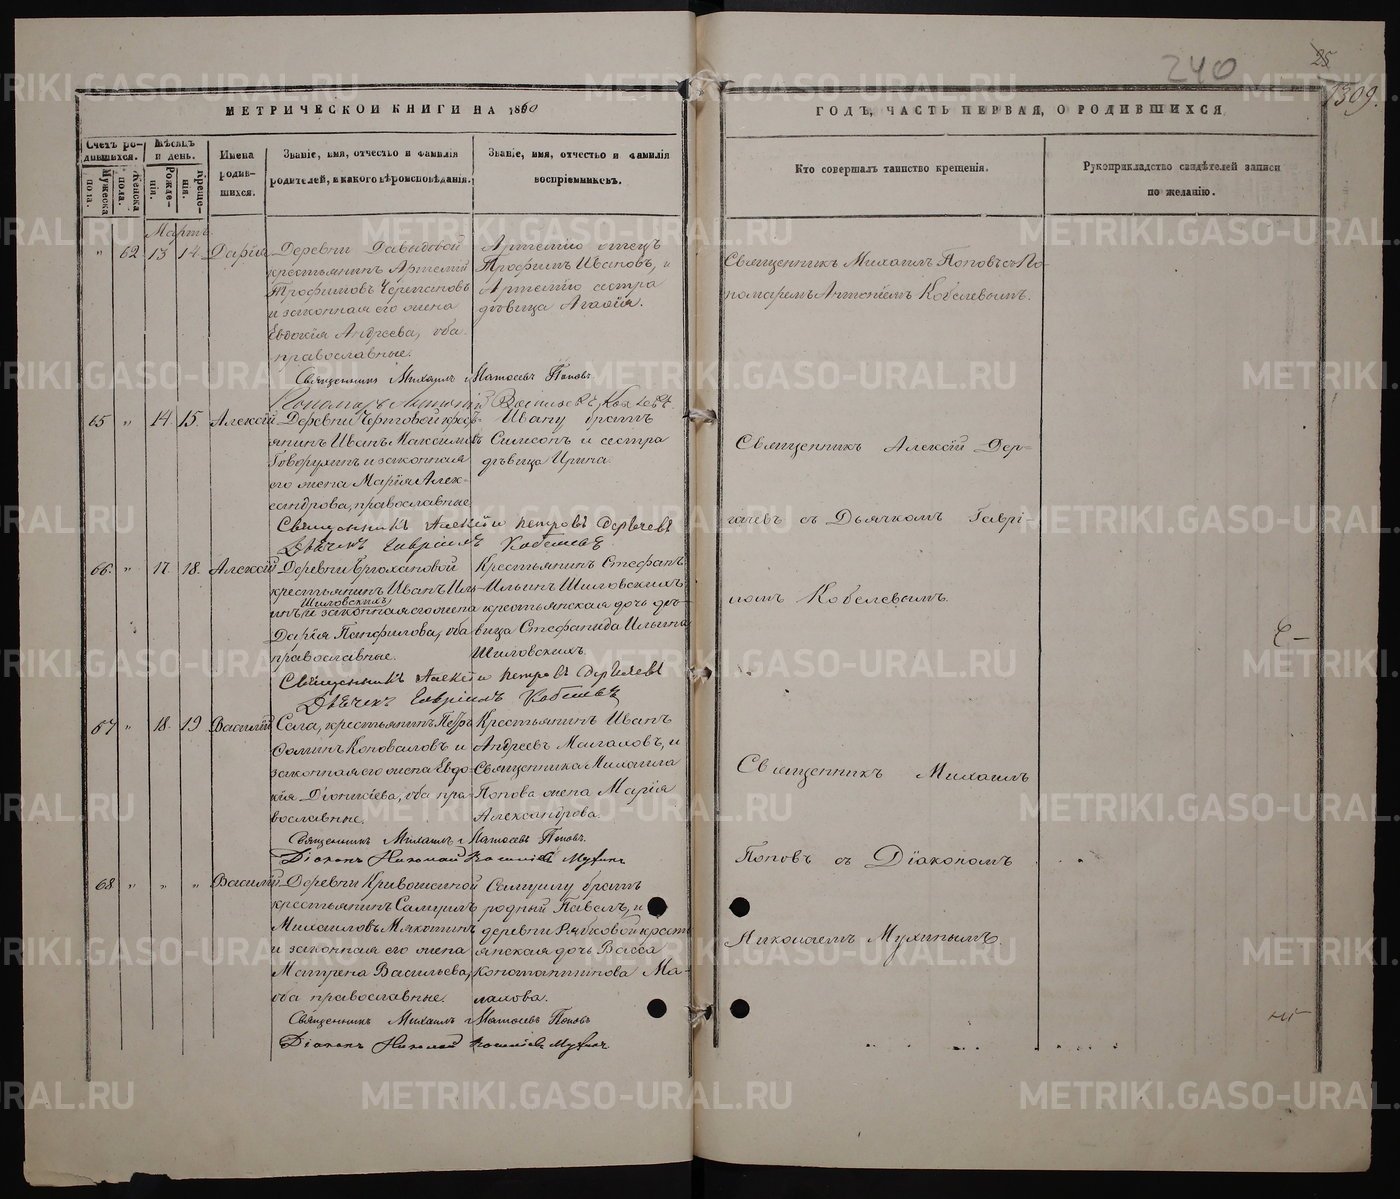 240
25
1309.
МЕТРИЧЕСКОЙ КНИГИ НА 1860
ГОДЪ, ЧАСТЬ ПЕРВАЯ, О РОДИВШИХСЯ
Счетъ родившихся.
Мужеска пола.
Женска пола.
Мѣсяцъ и день.
Рожденія.
Крещенія.
Имена родившихся.
Званіе, имя, отчество и фамилія
родителей, и какого вѣроисповѣданія.
Званіе, имя, отчество и фамилія
воспріемниковъ.
Кто совершалъ таинство крещенія.
Рукоприкладство свидѣтелей записи
по желанію.
Мартъ.
" 62 13 14 Дарія
Деревни Давыдовой
крестьянинъ Артемій
Трофимовъ Черепановъ
и законная его жена
Евдокія Андреева, оба
православные.
Артемію отецъ
Трофимъ Ивановъ, и
Артемію сестра
дѣвица Агафія.
Священникъ Михаилъ Поповъ съ По-
номаремъ Антоніемъ Кобелевымъ.
Священникъ Михаилъ Матѳеевъ Поповъ
Пономарь Антоній Васильевъ Кобелевъ.
65 " 14. 15. Алексій
Деревни Чертовой крестья-
янинъ Иванъ Максимовъ
Говорухинъ и законная
его жена Марія Алек-
сандрова, православные
Ивану братъ
Симеонъ и сестра
дѣвица Ирина.
Священникъ Алексій Дер-
гачевъ съ Дьячкомъ Гаврі-
ломъ Кобелевымъ.
Священникъ Алексій Петровъ Дергачевъ
Дьячекъ Гавріилъ Кобелевъ
66. " 17. 18. Алексій
Деревни Брюхановой
крестьянинъ Иванъ Иль-
Шиловскихъ
инъ и законная его жена
Дарія Панфилова, оба
православные.
Крестьянинъ Стефанъ
Ильинъ Шиловскихъ
крестьянская дочь дѣ-
вица Стефанида Ильина
Шиловскихъ.
Священникъ Алексій Петровъ Дергачевъ
Дьячекъ Гавріилъ Кобелевъ
67 " 18. 19 Василій
Села, крестьянинъ Петръ
Ѳоминъ Коноваловъ и
законная его жена Евдо-
кія Діонисіева, оба пра-
вославные.
Крестьянинъ Иванъ
Андреевъ Мангаловъ, и
Священника Михаила
Попова жена Марія
Александрова.
Священникъ Михаилъ
Поповъ съ Діакономъ
Николаемъ Мухинымъ.
Священникъ Михаилъ Матѳеевъ Поповъ.
Діаконъ Николай Мухинъ
68 " " " Василій
Деревни Кривошеиной
крестьянинъ Самуилъ
Михаиловъ Мякотинъ
и законная его жена
Матрена Васильева,
оба православные.
Самуилу братъ
родный Павелъ, и
деревни Рябковой крест-
янская дочь Васса
Константинова Ма-
лахова.
Священникъ Михаилъ Матѳеевъ Поповъ
Діаконъ Николай Мухинъ
METRIKI.GASO-URAL.RU